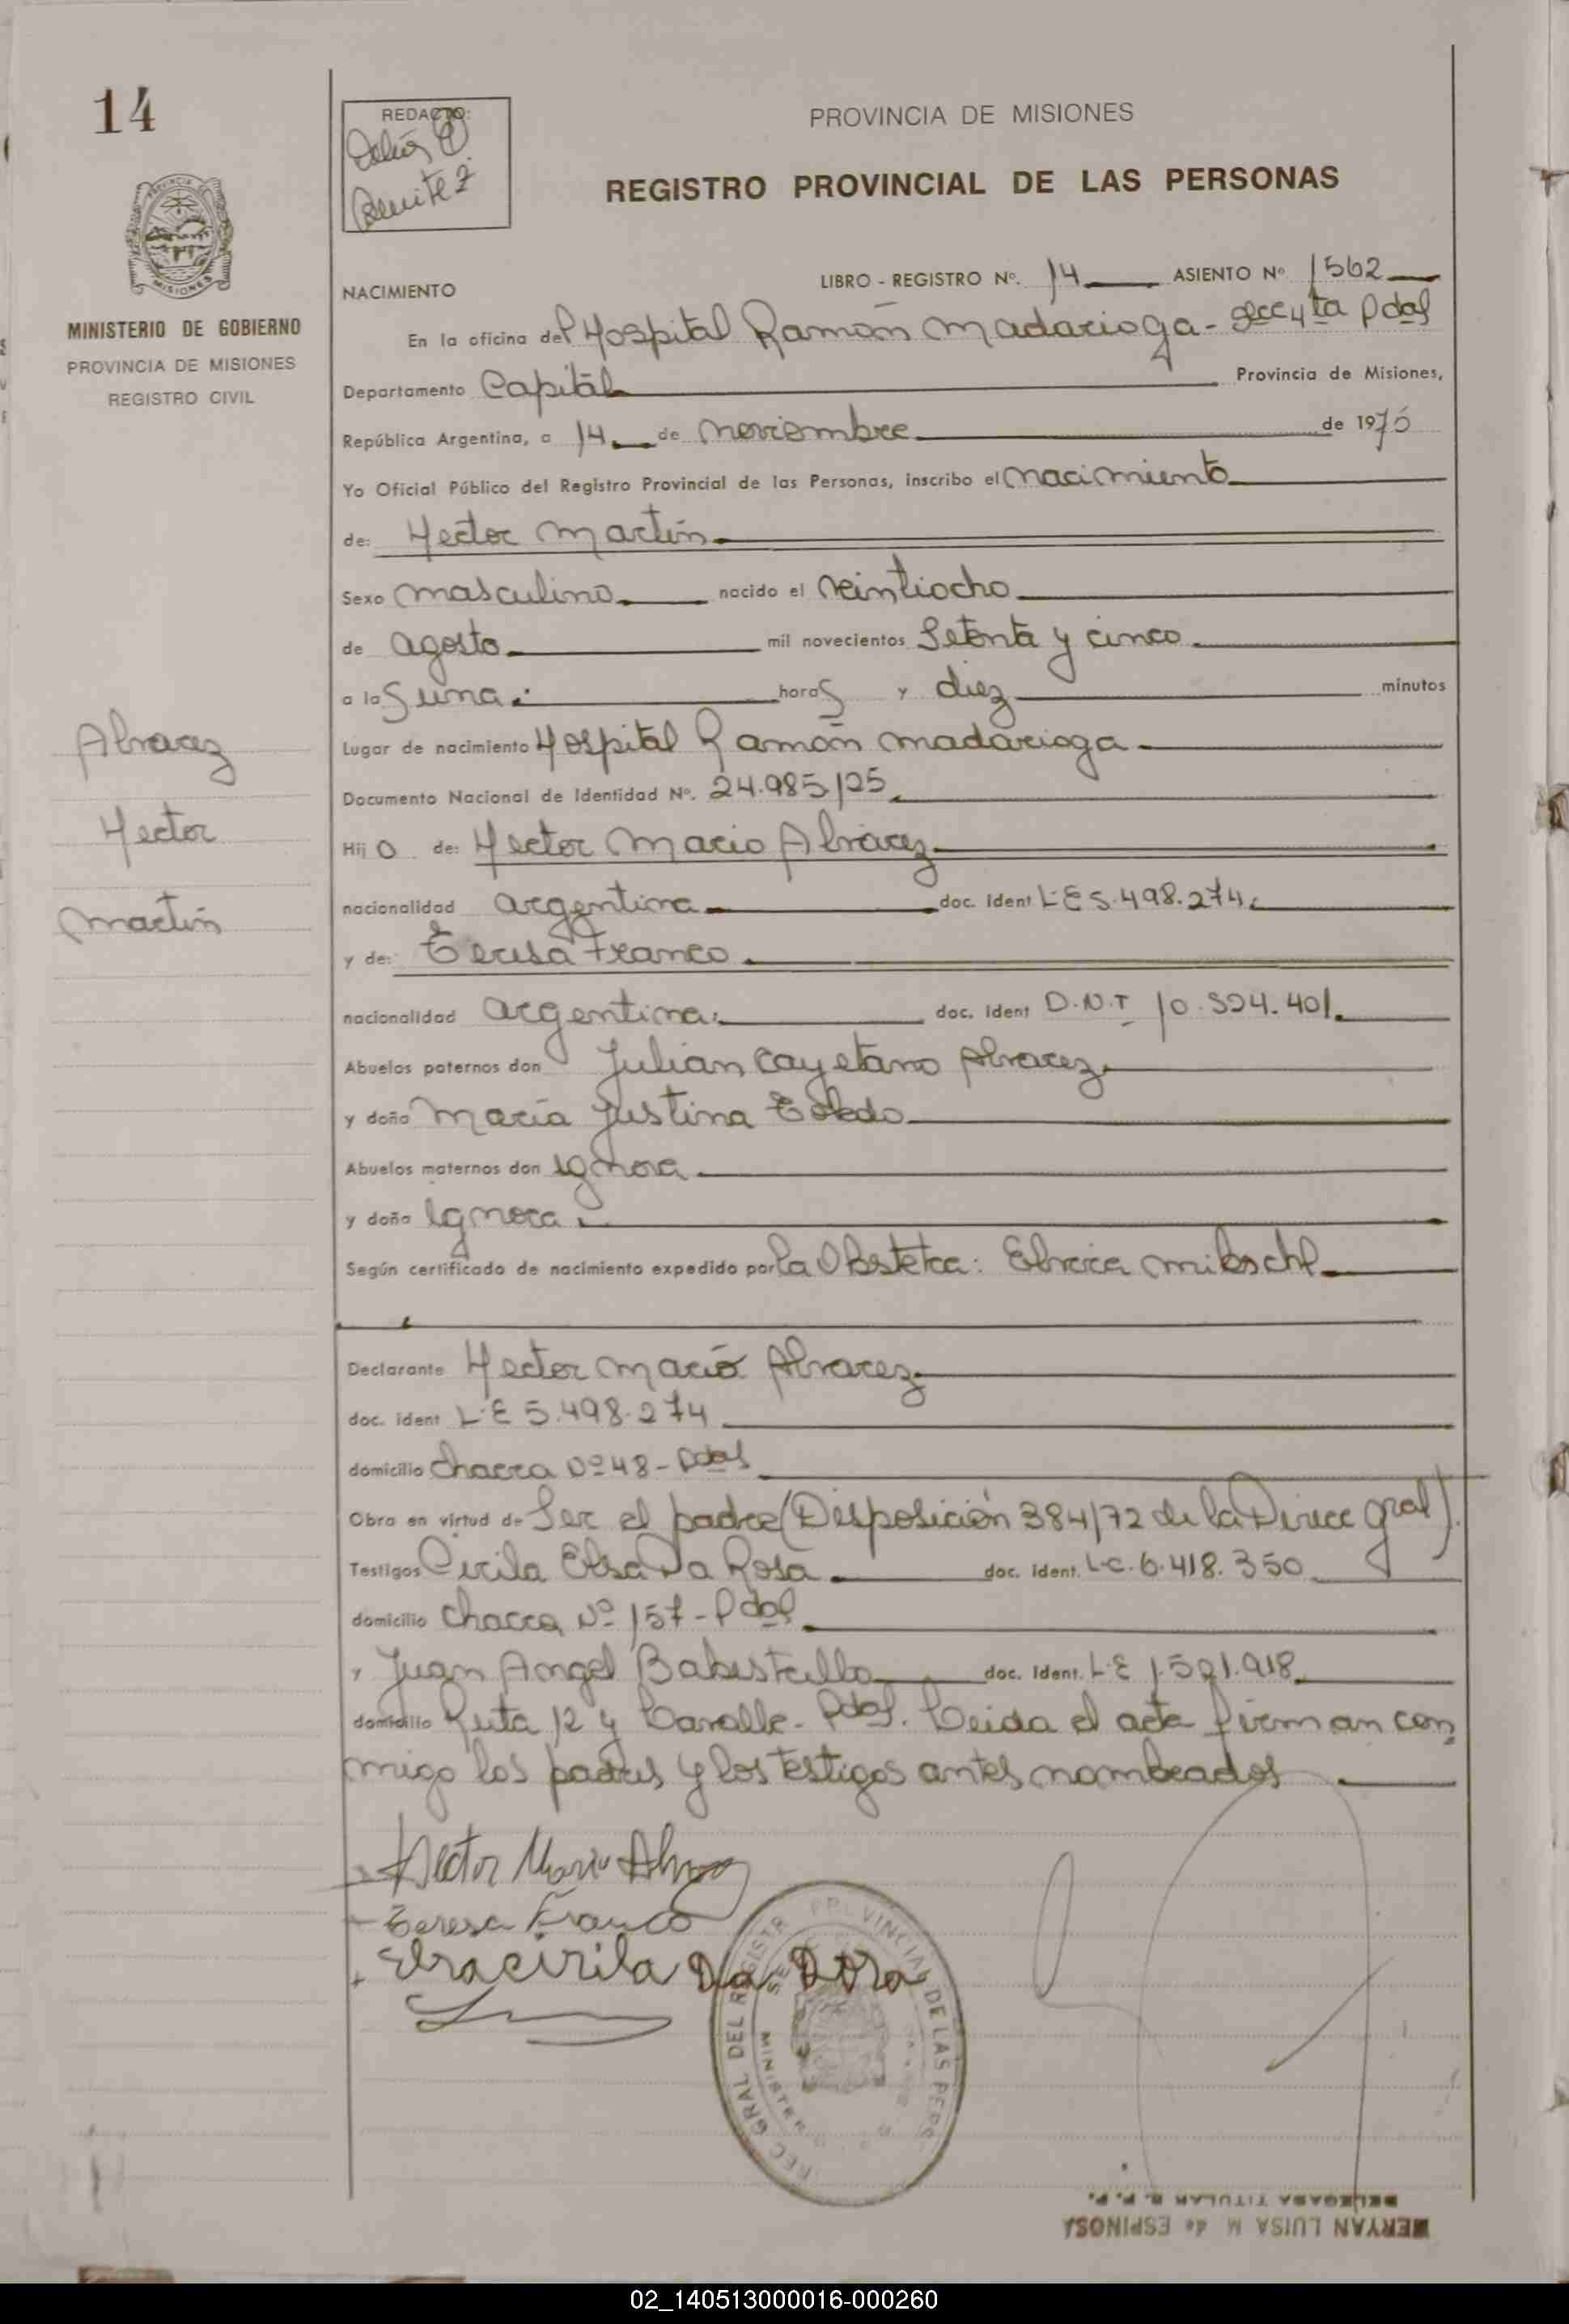 14
REDACTO:
Benitez
PROVINCIA DE MISIONES
REGISTRO PROVINCIAL DE LAS PERSONAS
MINISTERIO DE GOBIERNO
PROVINCIA DE MISIONES
REGISTRO CIVIL
NACIMIENTO
LIBRO - REGISTRO Nº. 14 ASIENTO Nº 1562
En la oficina del Hospital Ramón Madariaga - Secc 4ta Pdas
Departamento Capital Provincia de Misiones,
República Argentina, a 14 de noviembre de 1975
Yo Oficial Público del Registro Provincial de las Personas, inscribo el nacimiento
de: Hector Martín
Sexo masculino nacido el veintiocho
de agosto mil novecientos Setenta y cinco
a las una horas y diez minutos
Lugar de nacimiento Hospital Ramón Madariaga
Documento Nacional de Identidad Nº. 24.985125
Hijo de: Hector Mario Alvarez
nacionalidad argentina doc. Ident L E 5.498.274
y de: Teresa Franco
nacionalidad argentina doc. Ident D.N.I 10.524.401
Abuelos paternos don Julian Cayetano Alvarez
y doña María Justina Toledo
Abuelos maternos don Ignora
y doña Ignora
Según certificado de nacimiento expedido por la Obsteta: Elvira
Declarante Hector Mario Alvarez
doc. ident L.E 5.498.274
domicilio Chacra Nº 48 - Pdas
Obra en virtud de Ser el padre (Disposición 384/72 de la Direcc gral).
Testigos Cirila Elsa Da Rosa doc. Ident. L.C. 6.418.350
domicilio Chacra Nº 157 - Pdas
y Juan Angel doc. Ident. L.E 1.501.918
domicilio Ruta 12 y - Pdas. Leida el acta firman con
migo los padres y los testigos antes nombrados
Alvarez
Hector
Martín
Hector Mario Alvarez
Teresa Franco
Elsa Cirila Da Rosa
MERYAN LUISA M de ESPINOSA
DELEGADA TITULAR R. P. P.
02_140513000016-000260